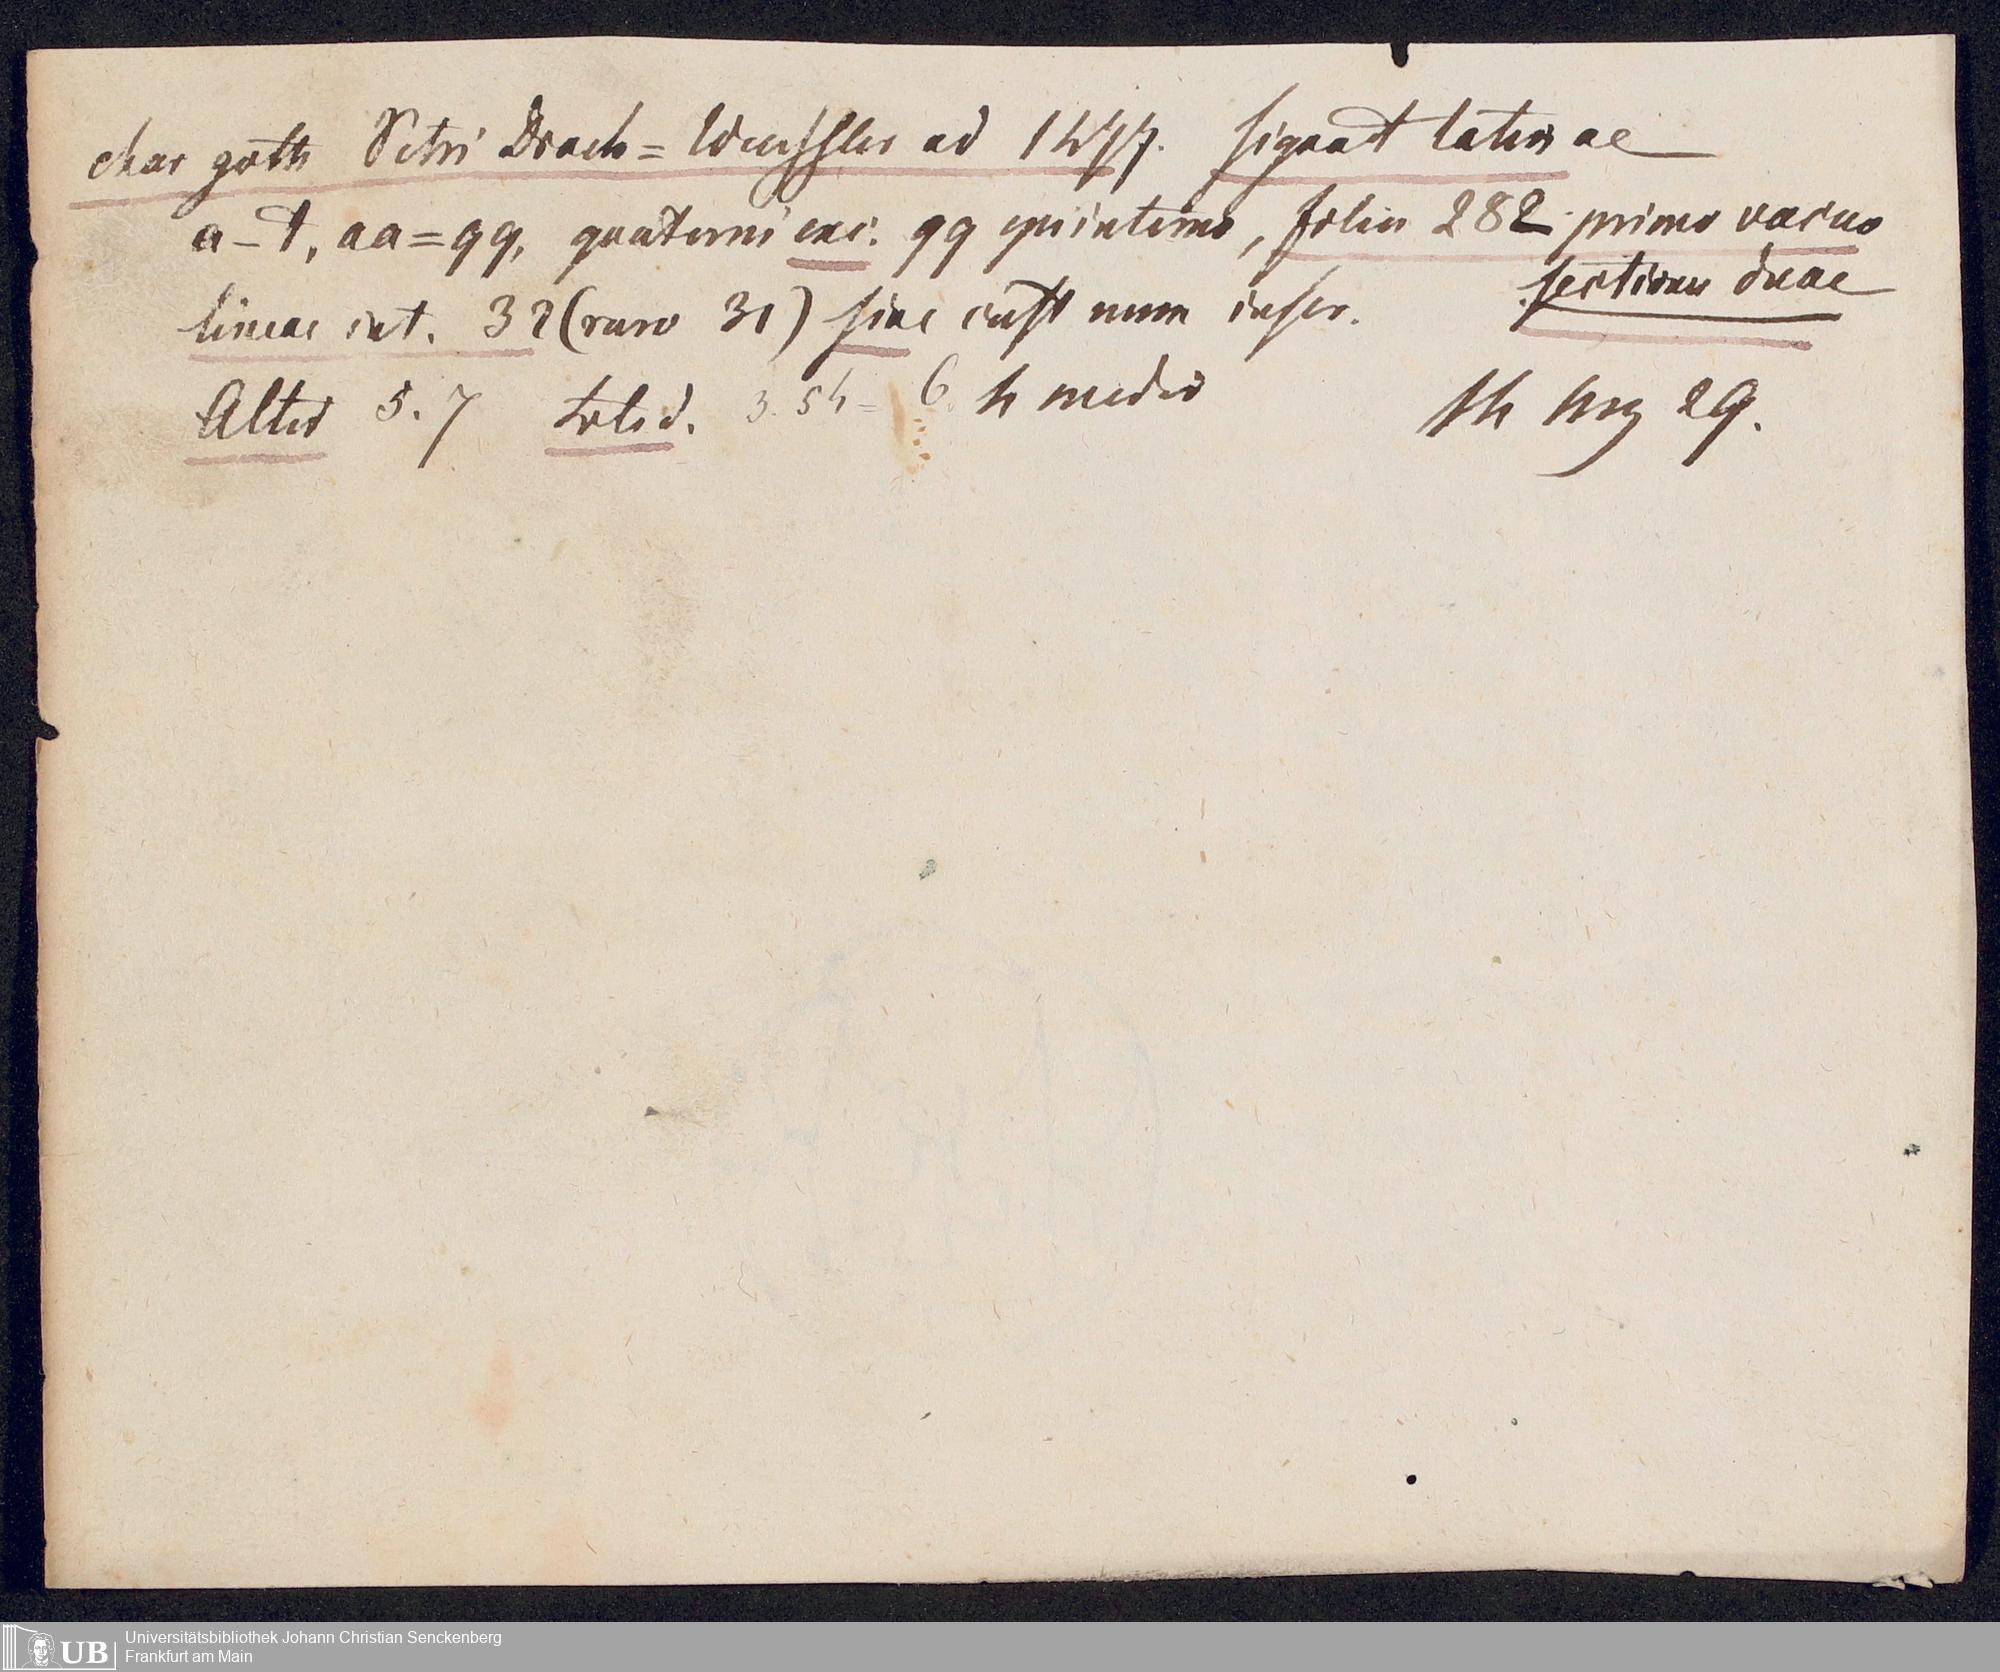 char goth Petri Drach = ad 1477. signat latinae
a–t, aa=qq, quaterni exc. qq quinterno, foliis 282 primo vacuo
sectiones duae
lineae int. 32 (raro 31) sine cust num inscr.
Altid 5. 7 Latid. 3. 54 = 6. h medio
th 29.
Universitätsbibliothek Johann Christian Senckenberg
Frankfurt am Main
UB